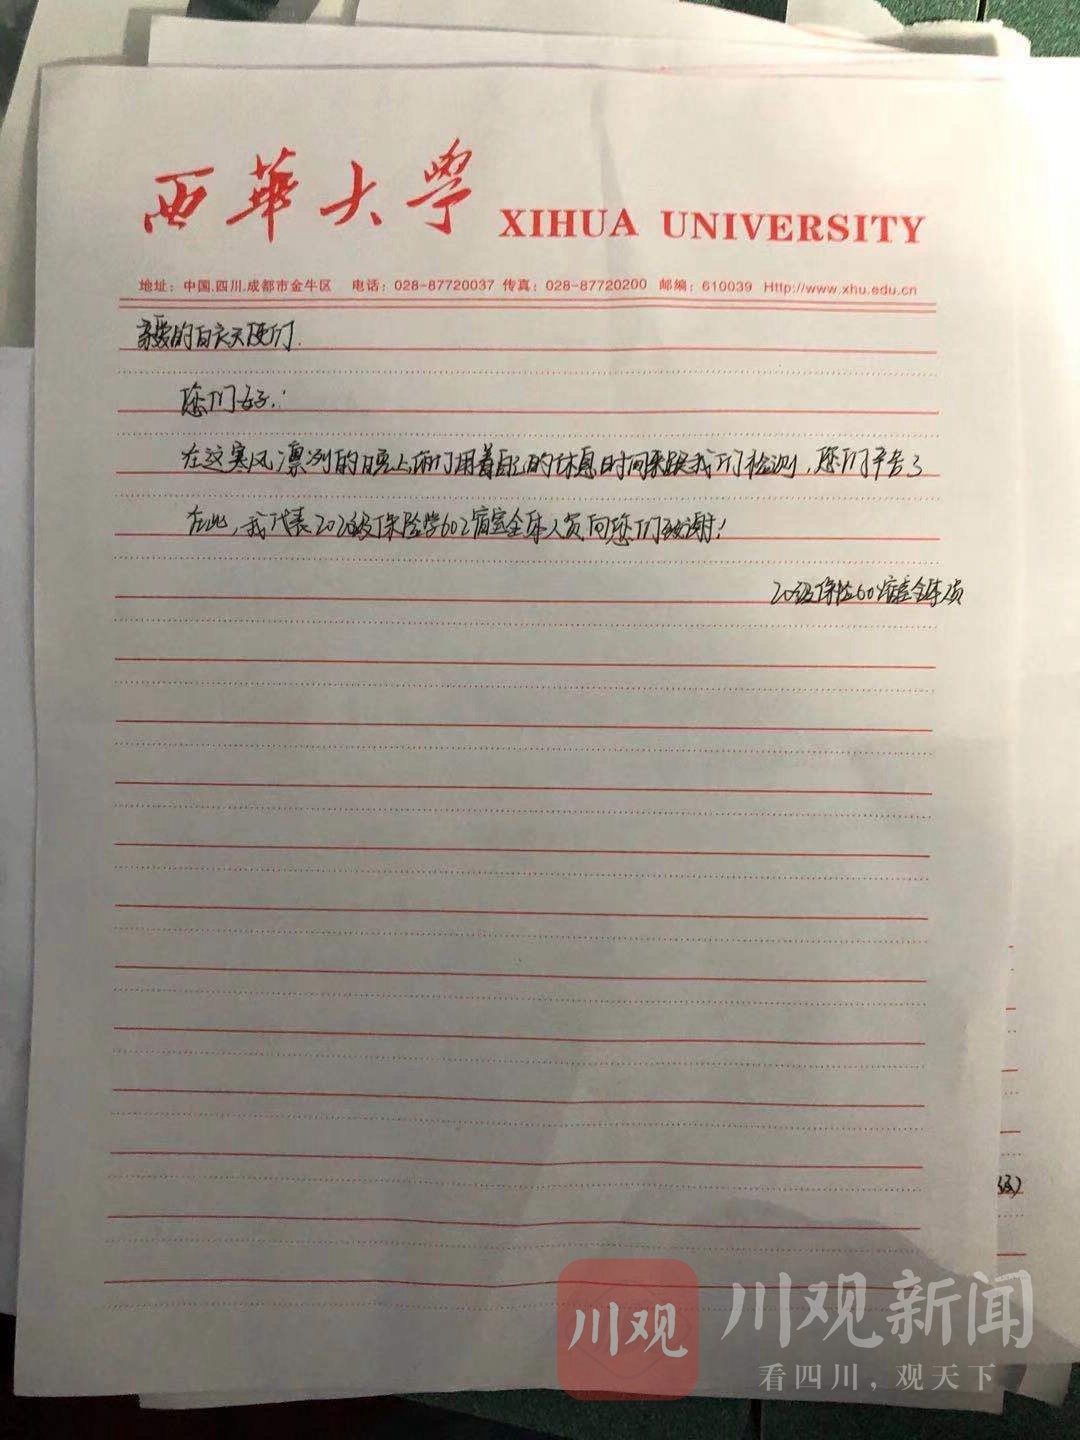 西華大學 XIHUA UNIVERSITY
地址：中国.四川.成都市金牛区 电话：028-87720037 传真：028-87720200 邮编：610039 Http://www.xhu.edu.cn
亲爱的白衣天使们
您们好：
在这寒风凛冽的晚上，你们用着自己的休息时间来跟我们检测，您们辛苦了
在此，我代表2020级保险学602宿舍全体人员向您们致谢！
20级保险602宿舍全体人员
川观
川观新闻
看四川，观天下